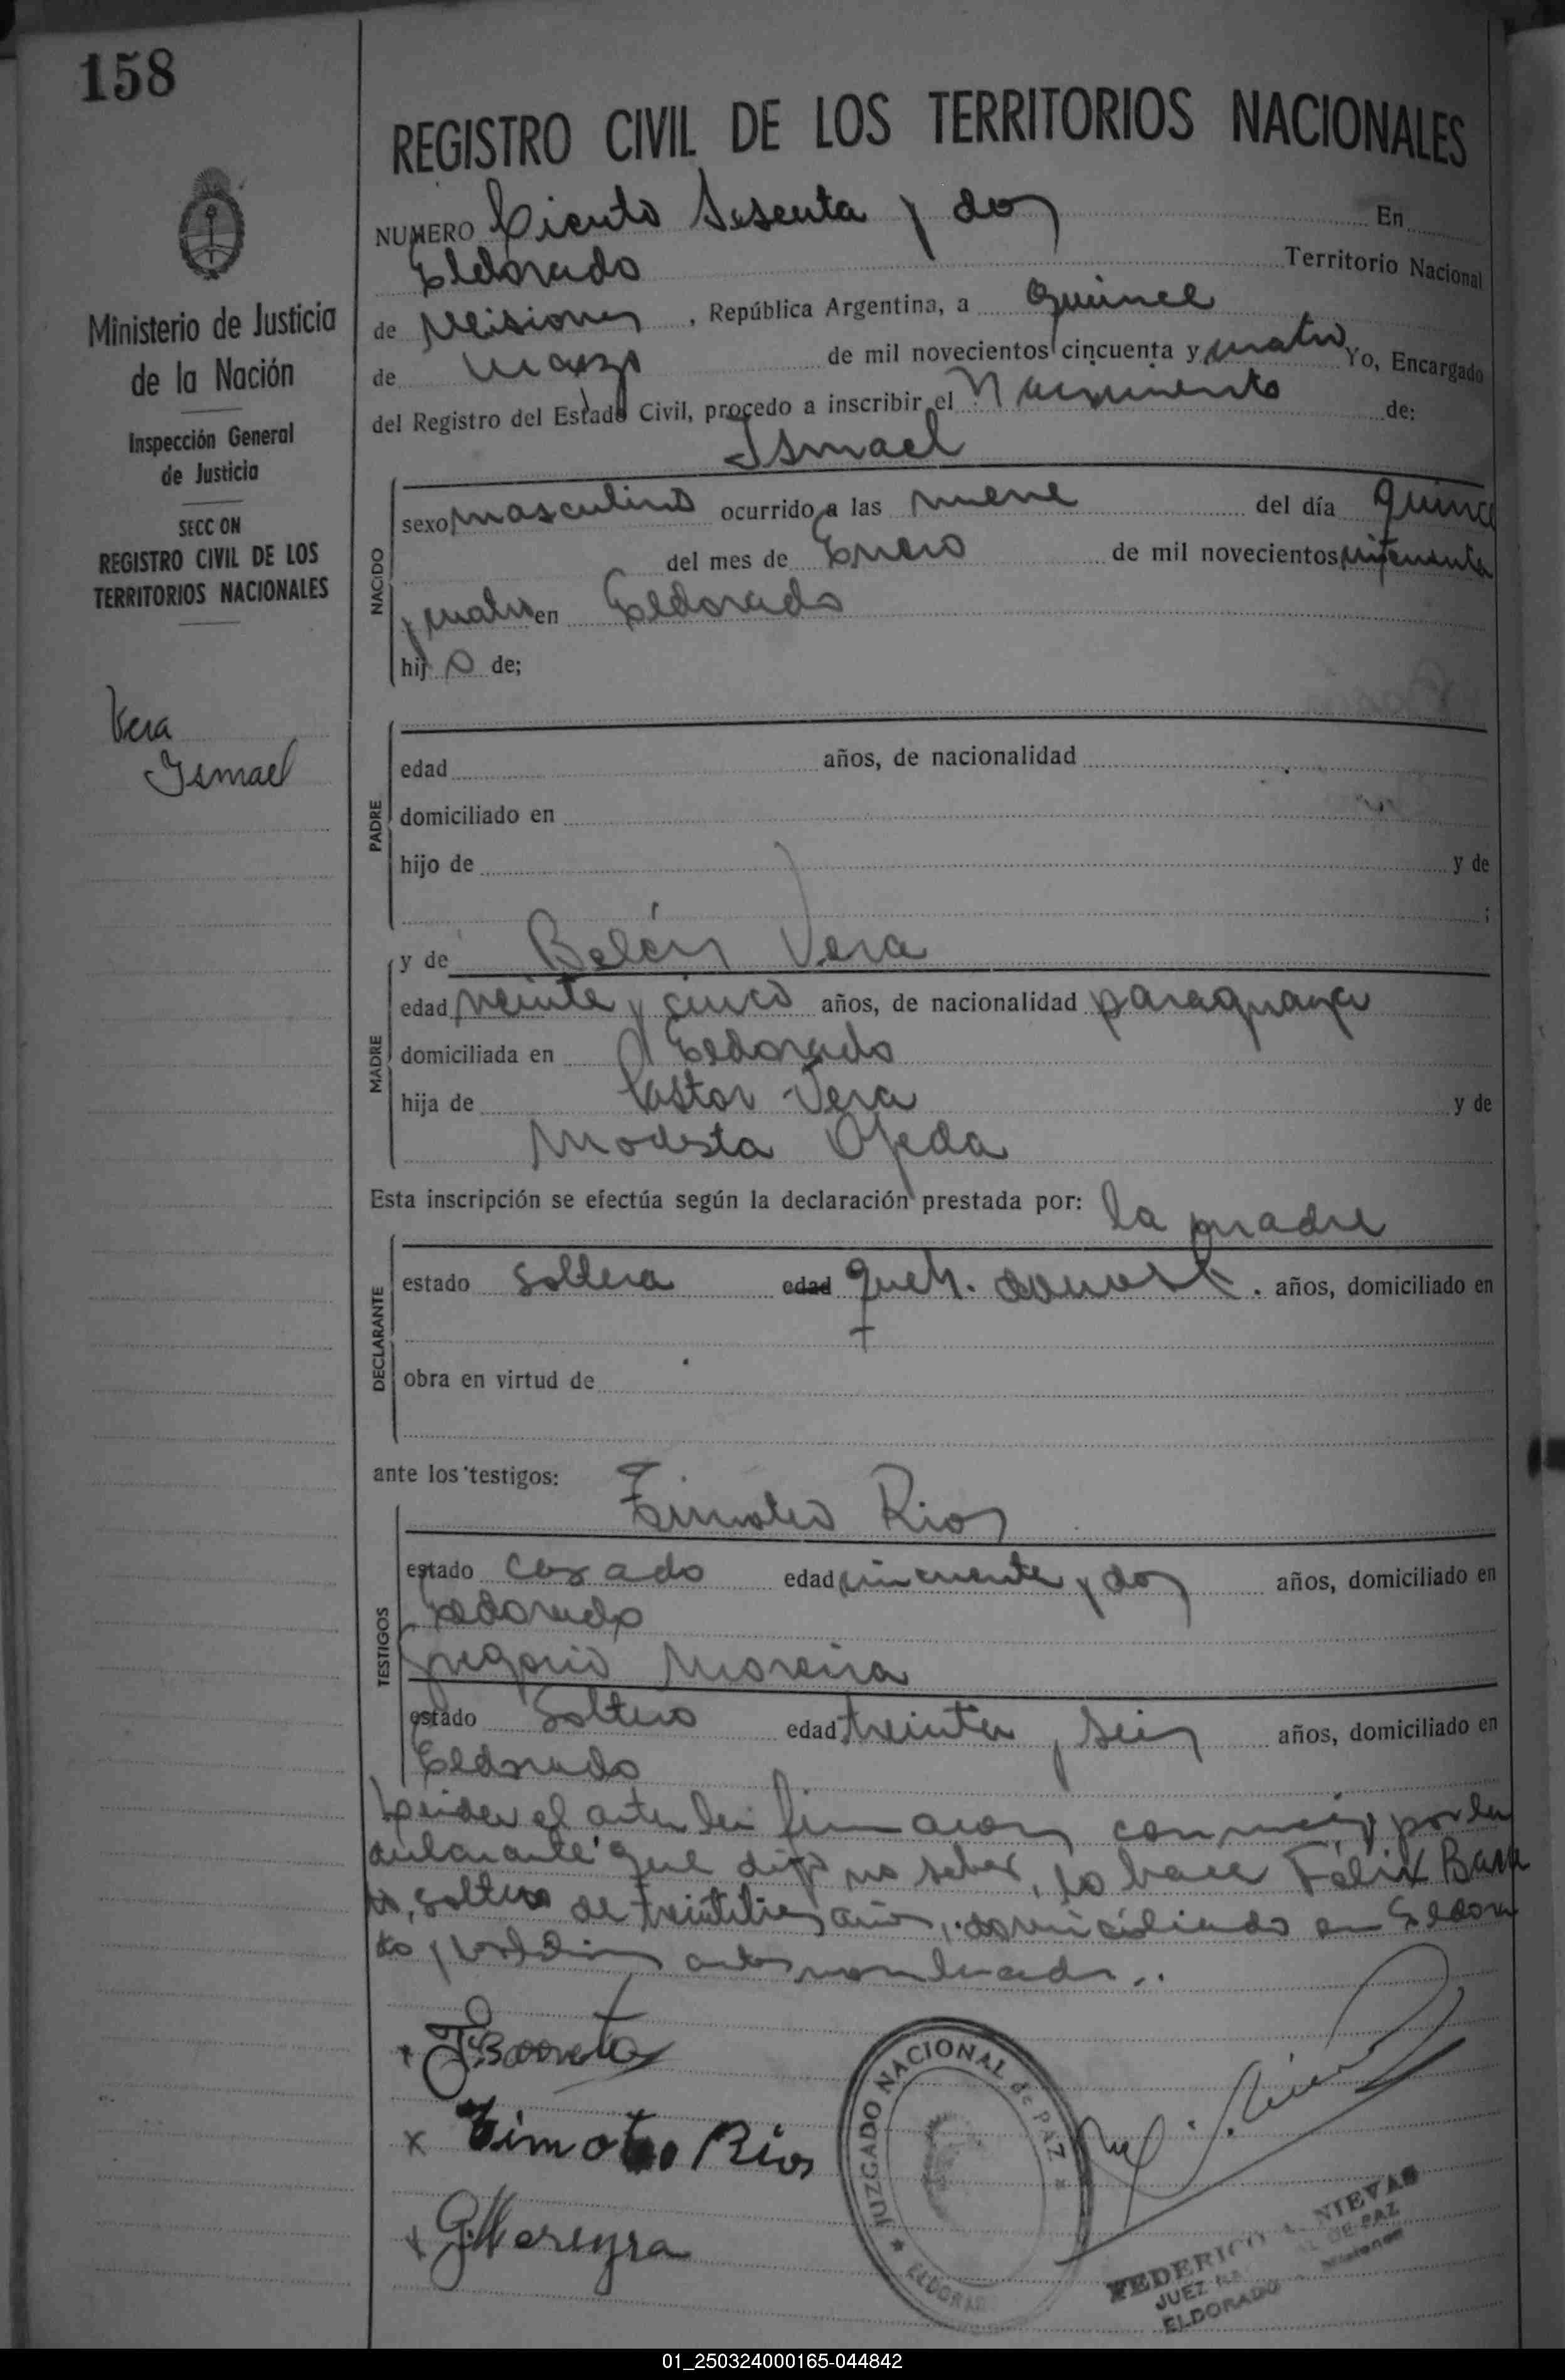 158
REGISTRO CIVIL DE LOS TERRITORIOS NACIONALES
NUMERO Ciento Sesenta y dos En
Eldorado Territorio Nacional
de Misiones, República Argentina, a quince
de Marzo de mil novecientos cincuenta y cuatro Yo, Encargado
del Registro del Estado Civil, procedo a inscribir el Nacimiento de:
Ismael
Ministerio de Justicia
de la Nación
Inspección General
de Justicia
SECC ON
REGISTRO CIVIL DE LOS
TERRITORIOS NACIONALES
Vera
Ismael
NACIDO
sexo masculino ocurrido a las nueve del día quince
del mes de Enero de mil novecientos cincuenta
y cuatro en Eldorado
hijo de;
PADRE
edad años, de nacionalidad
domiciliado en
hijo de y de
;
MADRE
y de Belén Vera
edad veinte y cinco años, de nacionalidad paraguaya
domiciliada en Eldorado
hija de Pastor Vera y de
Modesta Ojeda
Esta inscripción se efectúa según la declaración prestada por: la madre
DECLARANTE
estado soltera edad años, domiciliado en
obra en virtud de
ante los testigos:
TESTIGOS
Timoteo Rios
estado casado edad cincuenta y dos años, domiciliado en
Eldorado
Gregorio Moreira
estado Soltero edad treinta y seis años, domiciliado en
Eldorado
Leida el acta la firmaron conmigo por la
declarante que dijo no saber, lo hace Félix
soltero de treintitres años, domiciliado en Eldora
do y testigos antes nombrados..
x Timoteo Rios
x G. Mereyra
JUZGADO NACIONAL de PAZ
ELDORADO
FEDERICO NIEVAS
JUEZ DE PAZ
ELDORADO Misiones
01_250324000165-044842